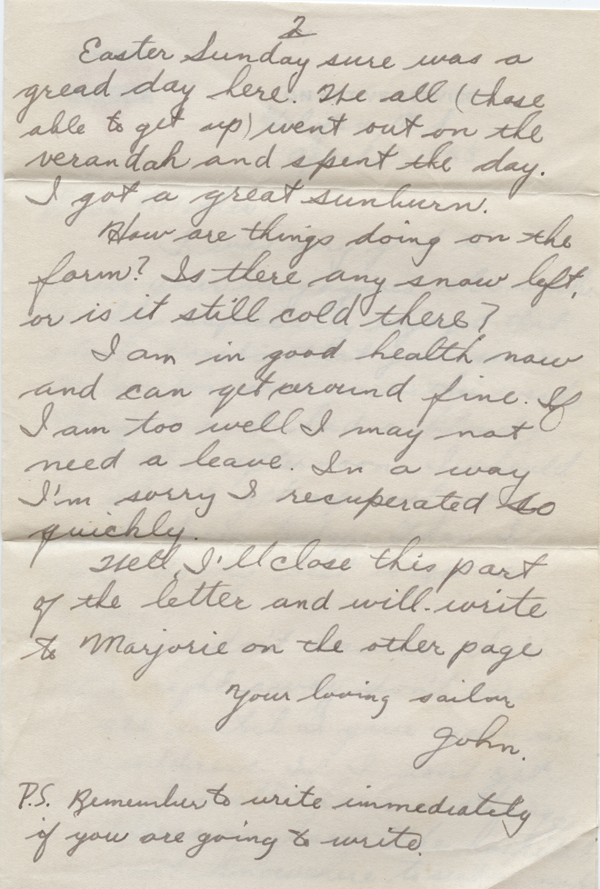 2
Easter Sunday sure was a
gread day here. We all (those
able to get up) went out on the
verandah and spent the day.
I got a great sunburn.
How are things doing on the
farm? Is there any snow left,
or is it still cold there?
I am in good health now
and can get around fine. If
I am too well I may not
need a leave. In a way
I'm sorry I recuperated so
quickly.
Well, I'll close this part
of the letter and will write
to Marjorie on the other page
Your loving sailor
John.
P.S. Remember to write immediately
if you are going to write.